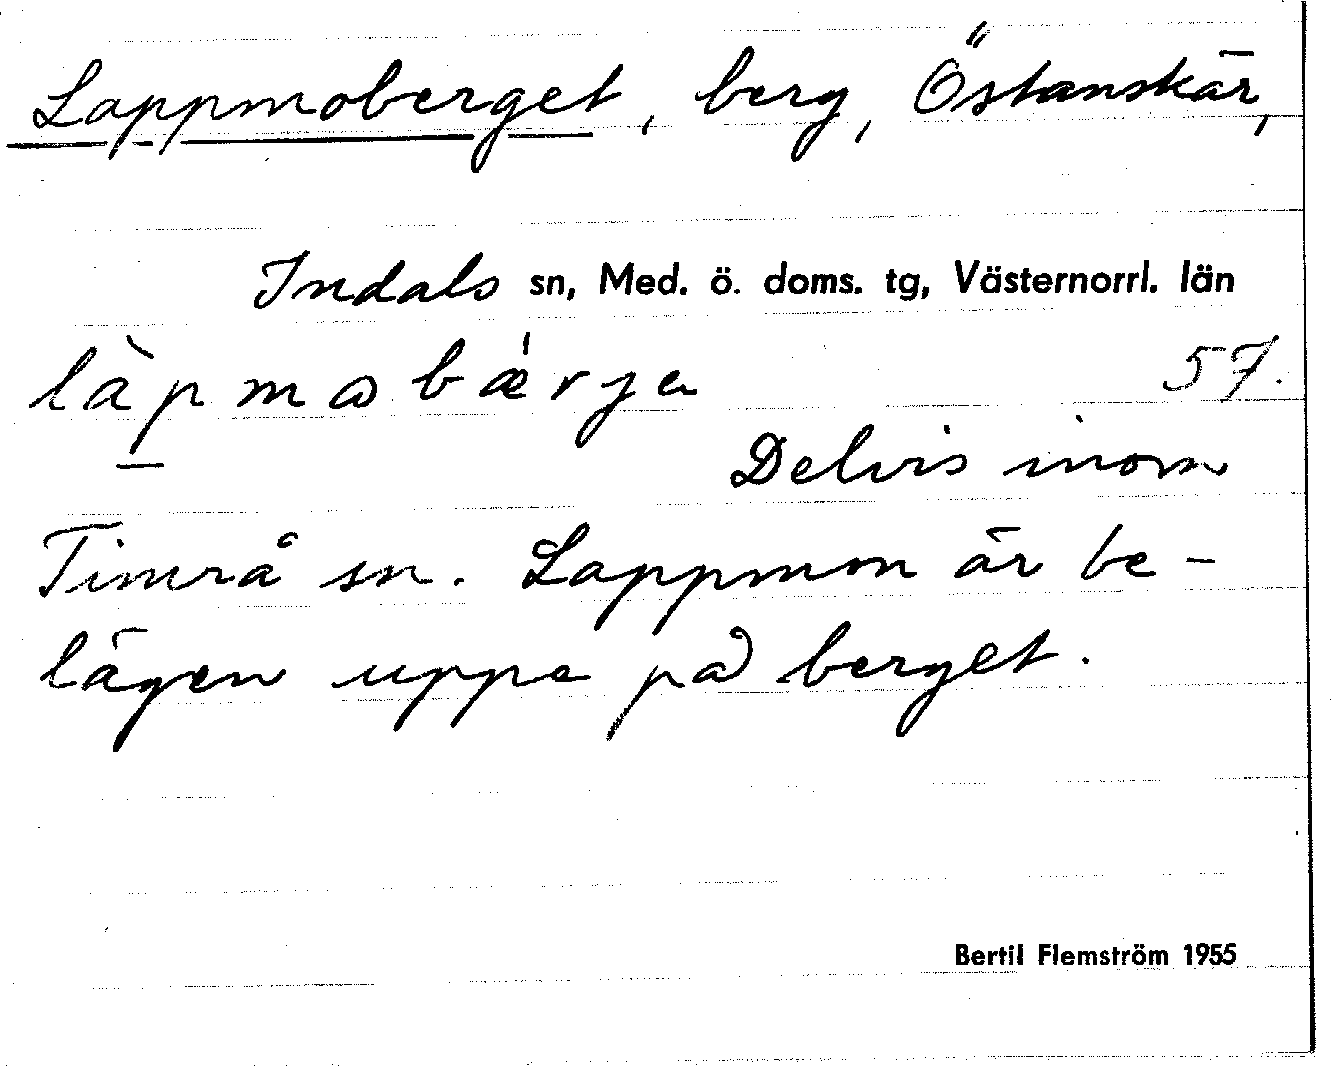 Lappmoberget, berg, Östanskär,
Indals sn, Med. ö. doms. tg, Västernorrl. län
làpmɷbǽrjə 57.
Delvis inom
Timrå sn. Lappmon är be-
lägen uppe på berget.
Bertil Flemström 1955